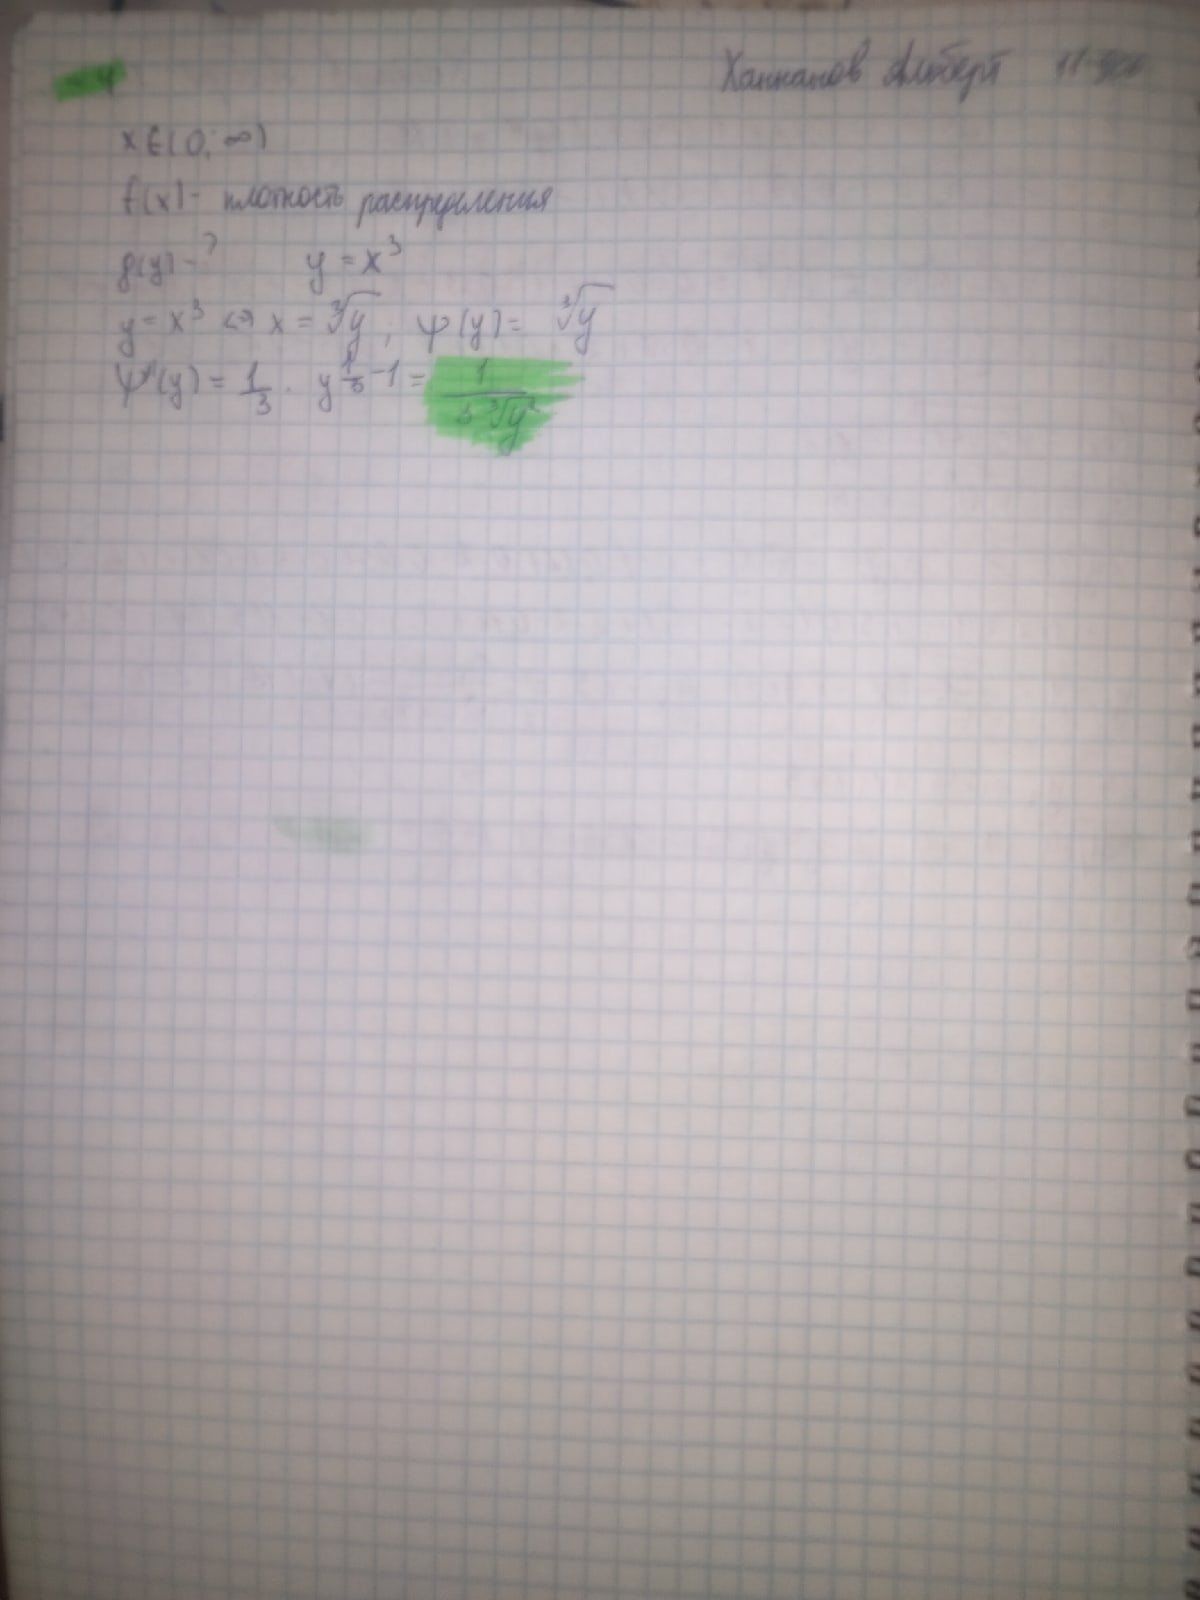 4 Ханнанов Альберт
x ∈ (0; ∞)
f(x) - плотность распределения
g(y) - ? y = x³
y = x³ <=> x = ∛y ; ψ(y) = ∛y
ψ'(y) = 1/3 · y^(1/3 - 1) = 1/(3 ∛y²)